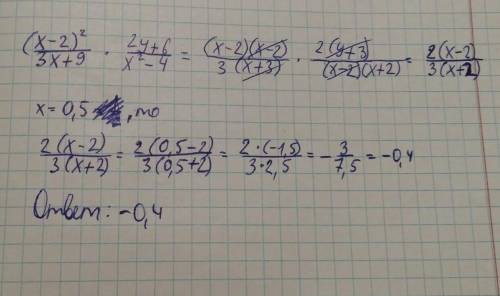 (x-2)²/3x+9 · 2y+6/x²-4 = (x-2)(x-2)/3(x+3) · 2(y+3)/(x-2)(x+2) = 2(x-2)/3(x+2)
x = 0,5 , то
2(x-2)/3(x+2) = 2(0,5-2)/3(0,5+2) = 2·(-1,5)/3·2,5 = -3/7,5 = -0,4
Ответ: -0,4